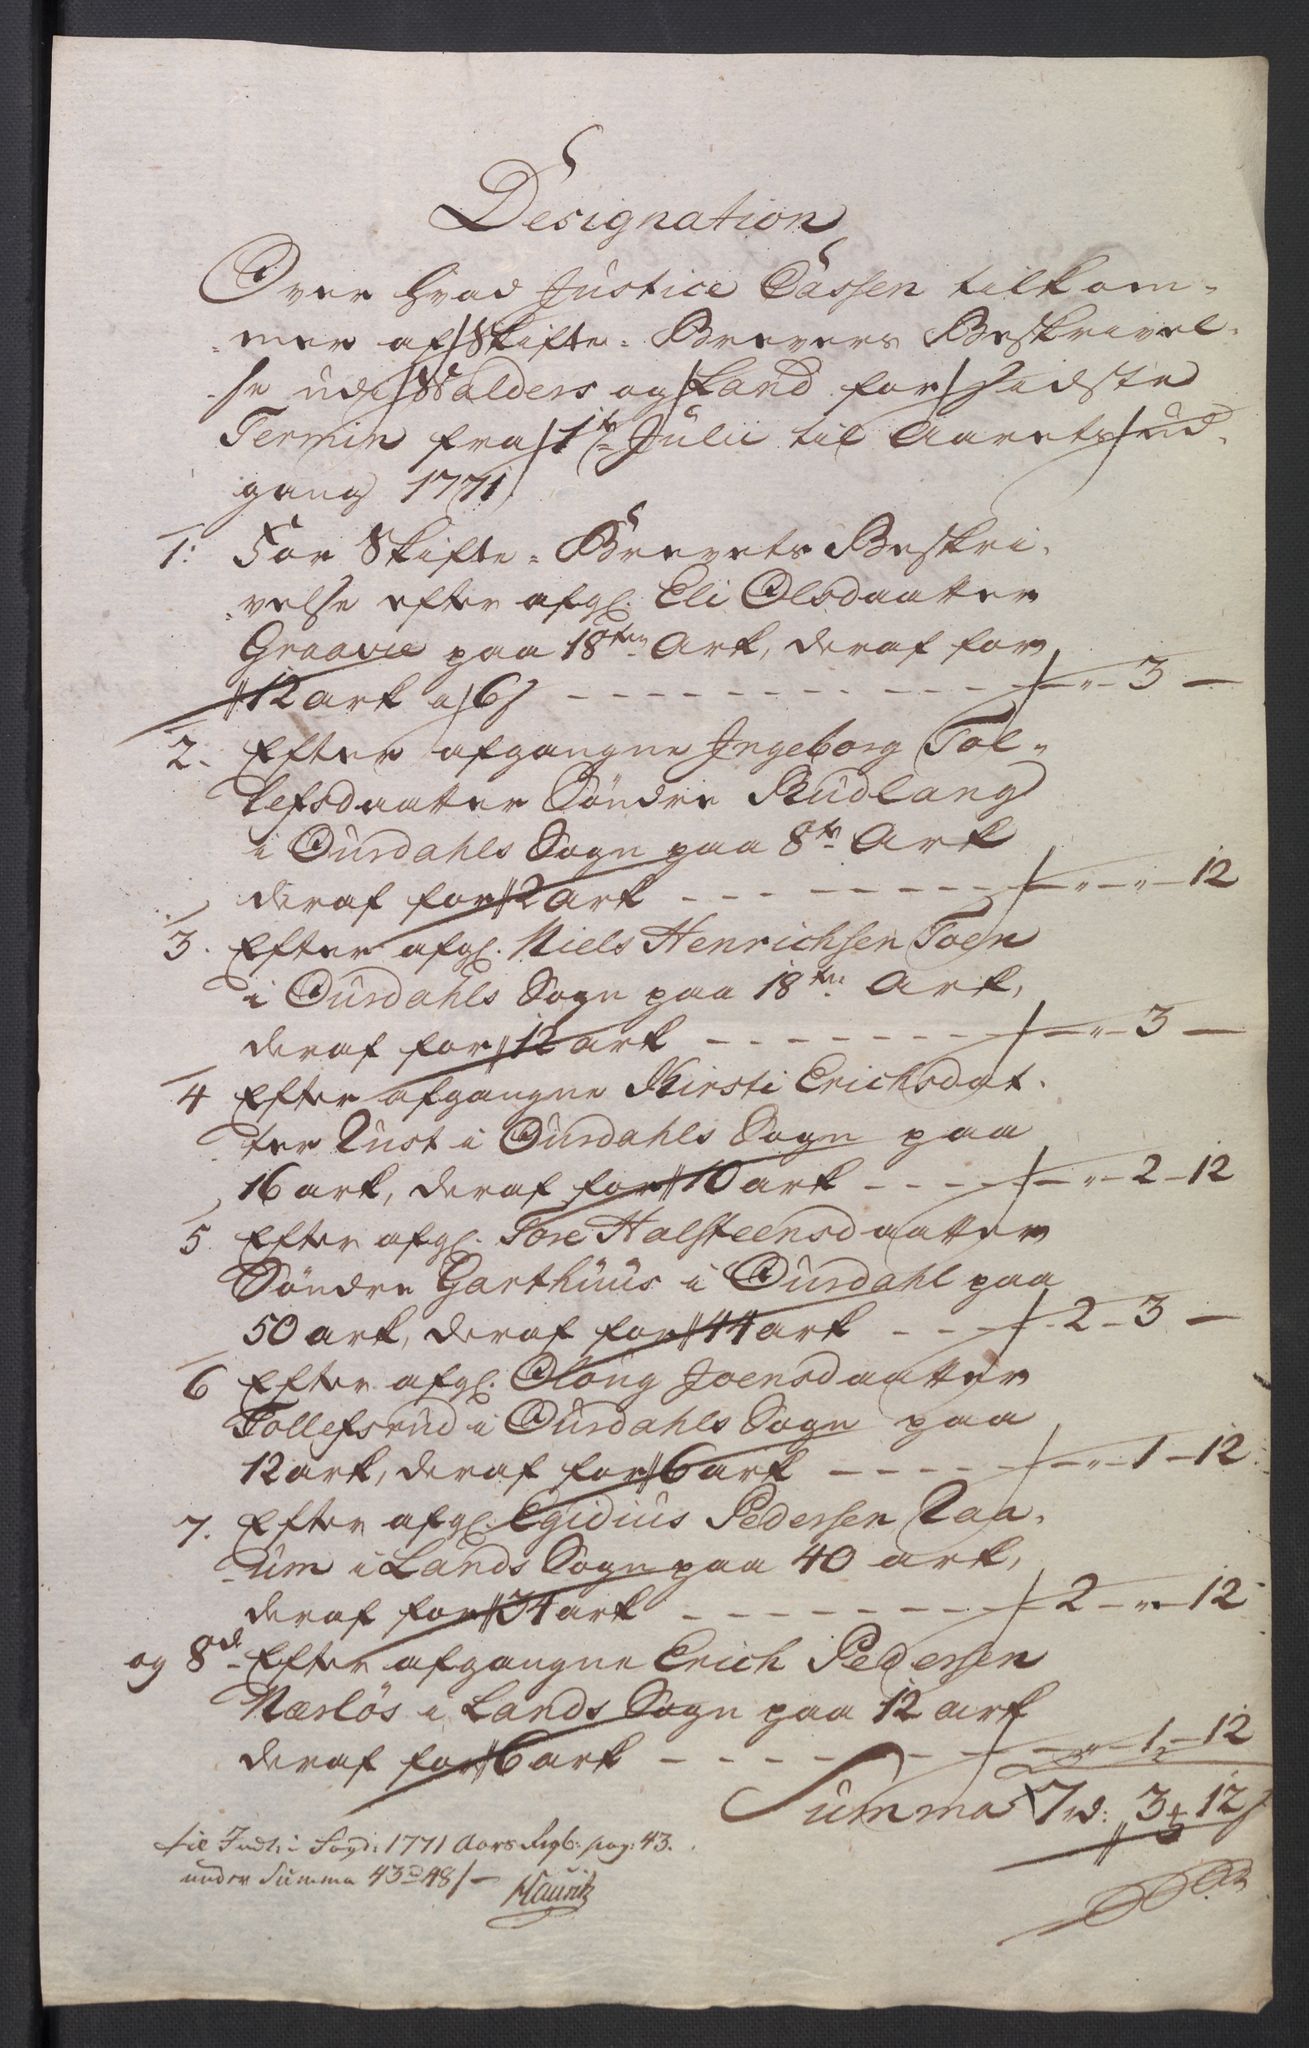 Designation
Over hvad Justice Cassen tilkom-
mer af Skifte-Brevers Beskrivel-
se udi Walders og Land for Sidste
Termin fra 1te Julii til Aarets ud-
gang 1771
1: For Skifte-Brevets Beskri-
velse efter afgl. Eli Olsdaatter
Graavie paa 18ten Ark, deraf for
12 ark a 6 s - - - " - 3 -
2. Efter afgangne Ingeborg Tol-
lefsdaatter Söndre Rudlang
i Ourdahls Sogn paa 8te Ark
deraf for 2 ark - - - " - " - 12
3. Efter afgl. Niels Henrichsen Toen
i Ourdahls Sogn paa 18ten Ark,
deraf for 12 ark - - - " - 3 -
4 Efter afgangne Kirsti Erichsdat-
ter Qust i Ourdahls Sogn paa
16 ark, deraf for 10 ark - - - " - 2 - 12
5 Efter afgl. Tore Halsteensdaatter
Söndre Garthuus i Ourdahl paa
50 ark, deraf for 44 ark - - - 2 - 3 -
6 Efter afgl. Oloug Joensdaatter
Tollefsrud i Ourdahls Sogn paa
12 ark, deraf for 6 ark - - - " - 1 - 12
7. Efter afgl. Egidius Pedersen Raa-
um i Lands Sogn paa 40 ark,
deraf for 34 ark - - - 2 - " - 12
og 8de Efter afgangne Erich Pedersen
Nærlös i Lands Sogn paa 12 ark
deraf for 6 ark - - - " - 1 - 12
Summa 7 rd: 3 12 s
til Indt: i Sogd: 1771 Aars Regb: pag: 43.
under Summa 43 d 48 s -
Hauritz